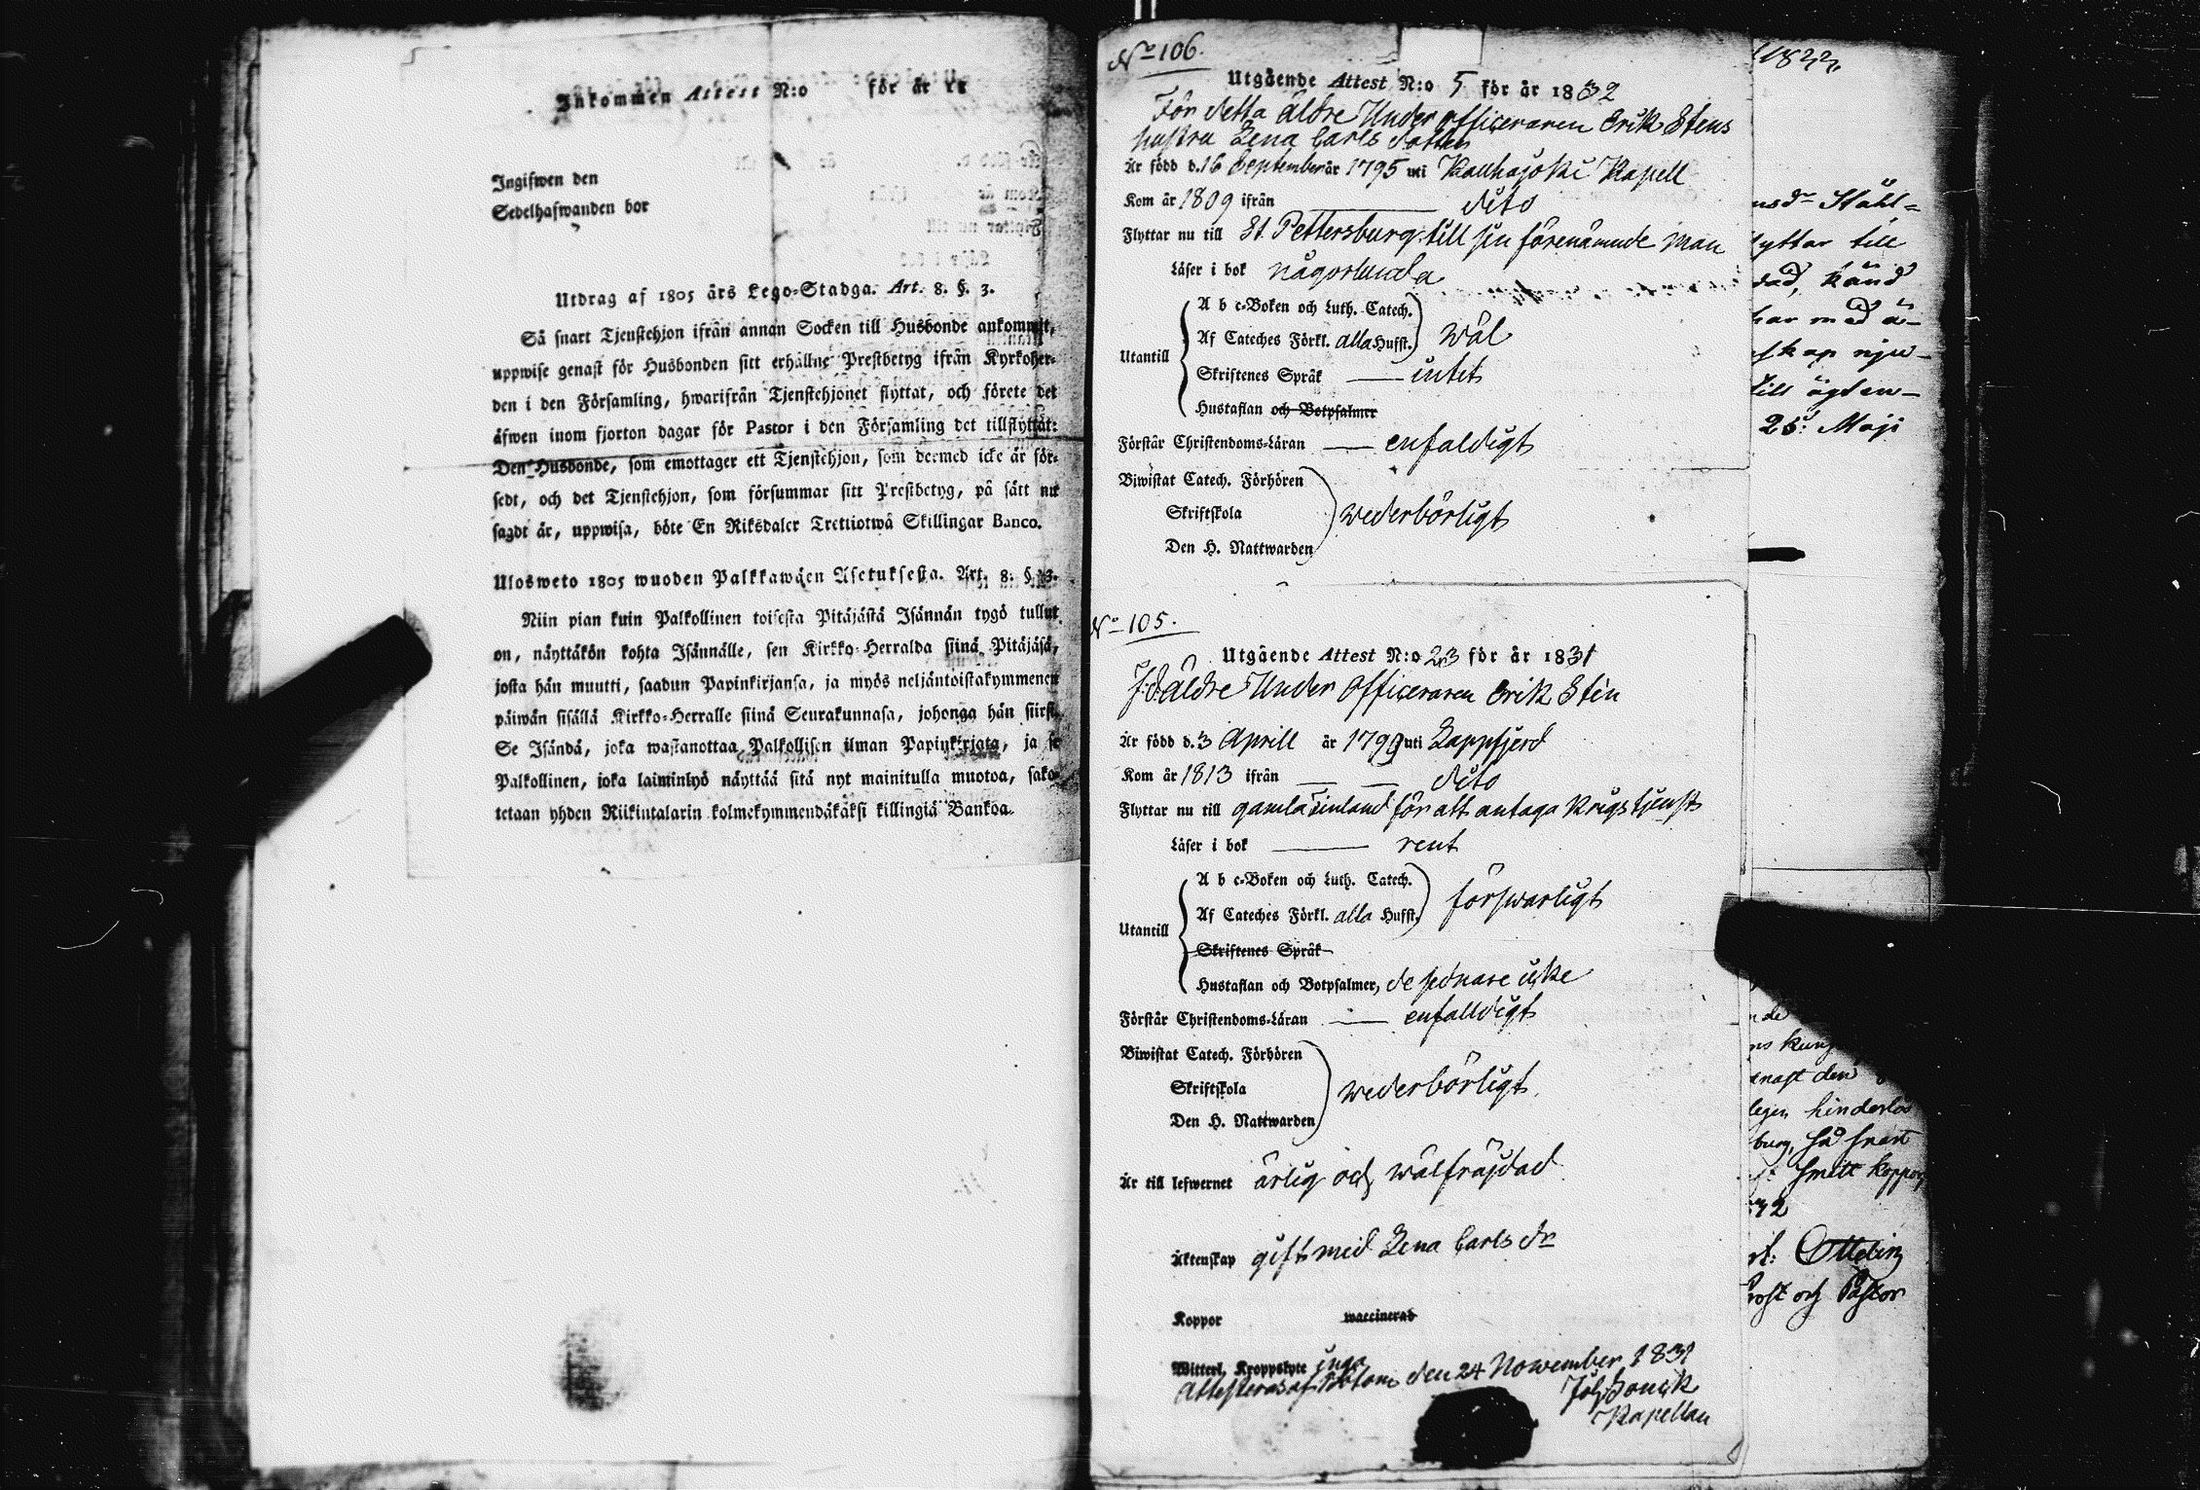 Inkommen Attest N:o för år 18
Ingifwen den
Sedelhafwanden bor
Utdrag af 1805 års Lego-Stadga. Art. 8. §. 3.
Så snart Tjenstehjon ifrån annan Socken till Husbonde ankommit,
uppwise genast för Husbonden sitt erhållne Prestbetyg ifrån Kyrkoher-
den i den Församling, hwarifrån Tjenstehjonet flyttat, och förete det
äfwen inom fjorton dagar för Pastor i den Församling det tillflyttat:
Den Husbonde, som emottager ett Tjenstehjon, som dermed icke är för-
sedt, och det Tjenstehjon, som försummar sitt Prestbetyg, på sätt nu
sagdt är, uppwisa, böte En Riksdaler Trettiotwå Skillingar Banco.
Ulosweto 1805 wuoden Palkkawäen Asetuksesta. Art. 8. §. 3.
Niin pian kuin Palkollinen toisesta Pitäjästä Isännän tygö tullut
on, näyttäkön kohta Isännälle, sen Kirkko-Herralda siinä Pitäjäsä,
josta hän muutti, saadun Papinkirjansa, ja myös neljäntoistakymmenen
päiwän sisällä Kirkko-Herralle siinä Seurakunnasa, johonga hän siirsi.
Se Isändä, joka wastanottaa Palkollisen ilman Papinkirjata, ja se
Palkollinen, joka laiminlyö näyttää sitä nyt mainitulla muotoa, sako-
tetaan yhden Riikintalarin kolmekymmendäkäksi killingiä Bankoa.
No 106.
Utgående Attest N:o 5 för år 1832
För detta äldre Under officeraren Erik Stens
hustru Lena Carls dotter
Är född d. 16 September år 1795 uti Kauhajoki Kapell
Kom år 1809 ifrån dito
Flyttar nu till St. Pettersburg till sin förenämnde man
Läser i bok någorlunda
Utantill
A b c-Boken och Luth. Catech.
Af Cateches Förkl. alla Hufst. wäl
Skriftenes Språk intet
Hustaflan och Botpsalmer
Förstår Christendoms-Läran enfaldigt
Biwistat Catech. Förhören
Skriftskola wederbörligt
Den H. Nattwarden
No 105.
Utgående Attest N:o 23 för år 1831
F. d. äldre Under officeraren Erik Sten
Är född d. 3 Aprill år 1799 uti Lappfjerd
Kom år 1813 ifrån dito
Flyttar nu till gamla Finland för att antaga krigstjenst
Läser i bok rent
Utantill
A b c-Boken och Luth. Catech.
Af Cateches Förkl. alla Hufst. förswarligt
Skriftenes Språk
Hustaflan och Botpsalmer, de senare icke
Förstår Christendoms-Läran enfalldigt
Biwistat Catech. Förhören
Skriftskola wederbörligt
Den H. Nattwarden
Är till lefwernet ärlig och wälfräjdad
Äktenskap gift med Lena Carls dr
Koppor waccinerad
Witterl. Kroppslyte inga
Attesteras af Bötom den 24 November 1831
Kapellan
1833.
Ståhl=
yttar till
känd
har med ä-
skap nju-
till ägten-
25: Maji
de
den
hinderlös
burg, så snart
Smitt koppor
Ottelin
Prost och Pastor